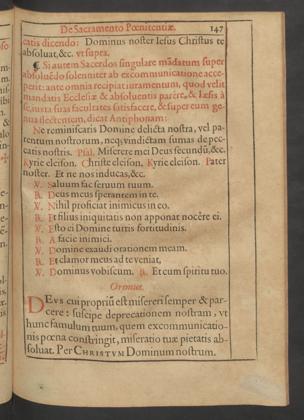 De Sacramento Pœnitentiæ. 147
catis dicendo: Dominus noster Iesus Christus te
absoluat, &c. vt supra.
¶ Si autem Sacerdos singulare mãdatum super
absoluẽdo solenniter ab excommunicatione acce-
perit: ante omnia recipiat iuramentum, quod velit
mandatis Ecclesiæ & absoluentis parêre, & læsis à
se, iuxta suas facultates satisfacere, & super eum ge-
nua flectentem, dicat Antiphonam:
Ne reminiscaris Domine delicta nostra, vel pa-
rentum nostrorum, neq; vindictam sumas de pec-
catis nostris. Psal. Miserere mei Deus secundũ, &c.
Kyrie eleison. Christe eleison. Kyrie eleison. Pater
noster. Et ne nos inducas, &c.
℣. Saluum fac seruum tuum.
℟. Deus meus sperantem in te.
℣. Nihil proficiat inimicus in eo.
℟. Et filius iniquitatis non apponat nocêre ei.
℣. Esto ei Domine turris fortitudinis.
℟. A facie inimici.
℣. Domine exaudi orationem meam.
℟. Et clamor meus ad te veniat.
℣. Dominus vobiscum. ℟. Et cum spiritu tuo.
Oremus.
DEVS cui propriũ est misereri semper & par-
cere: suscipe deprecationem nostram, vt
hunc famulum tuum, quem excommunicatio-
nis pœna constringit, miseratio tuæ pietatis ab-
soluat. Per CHRISTVM Dominum nostrum.